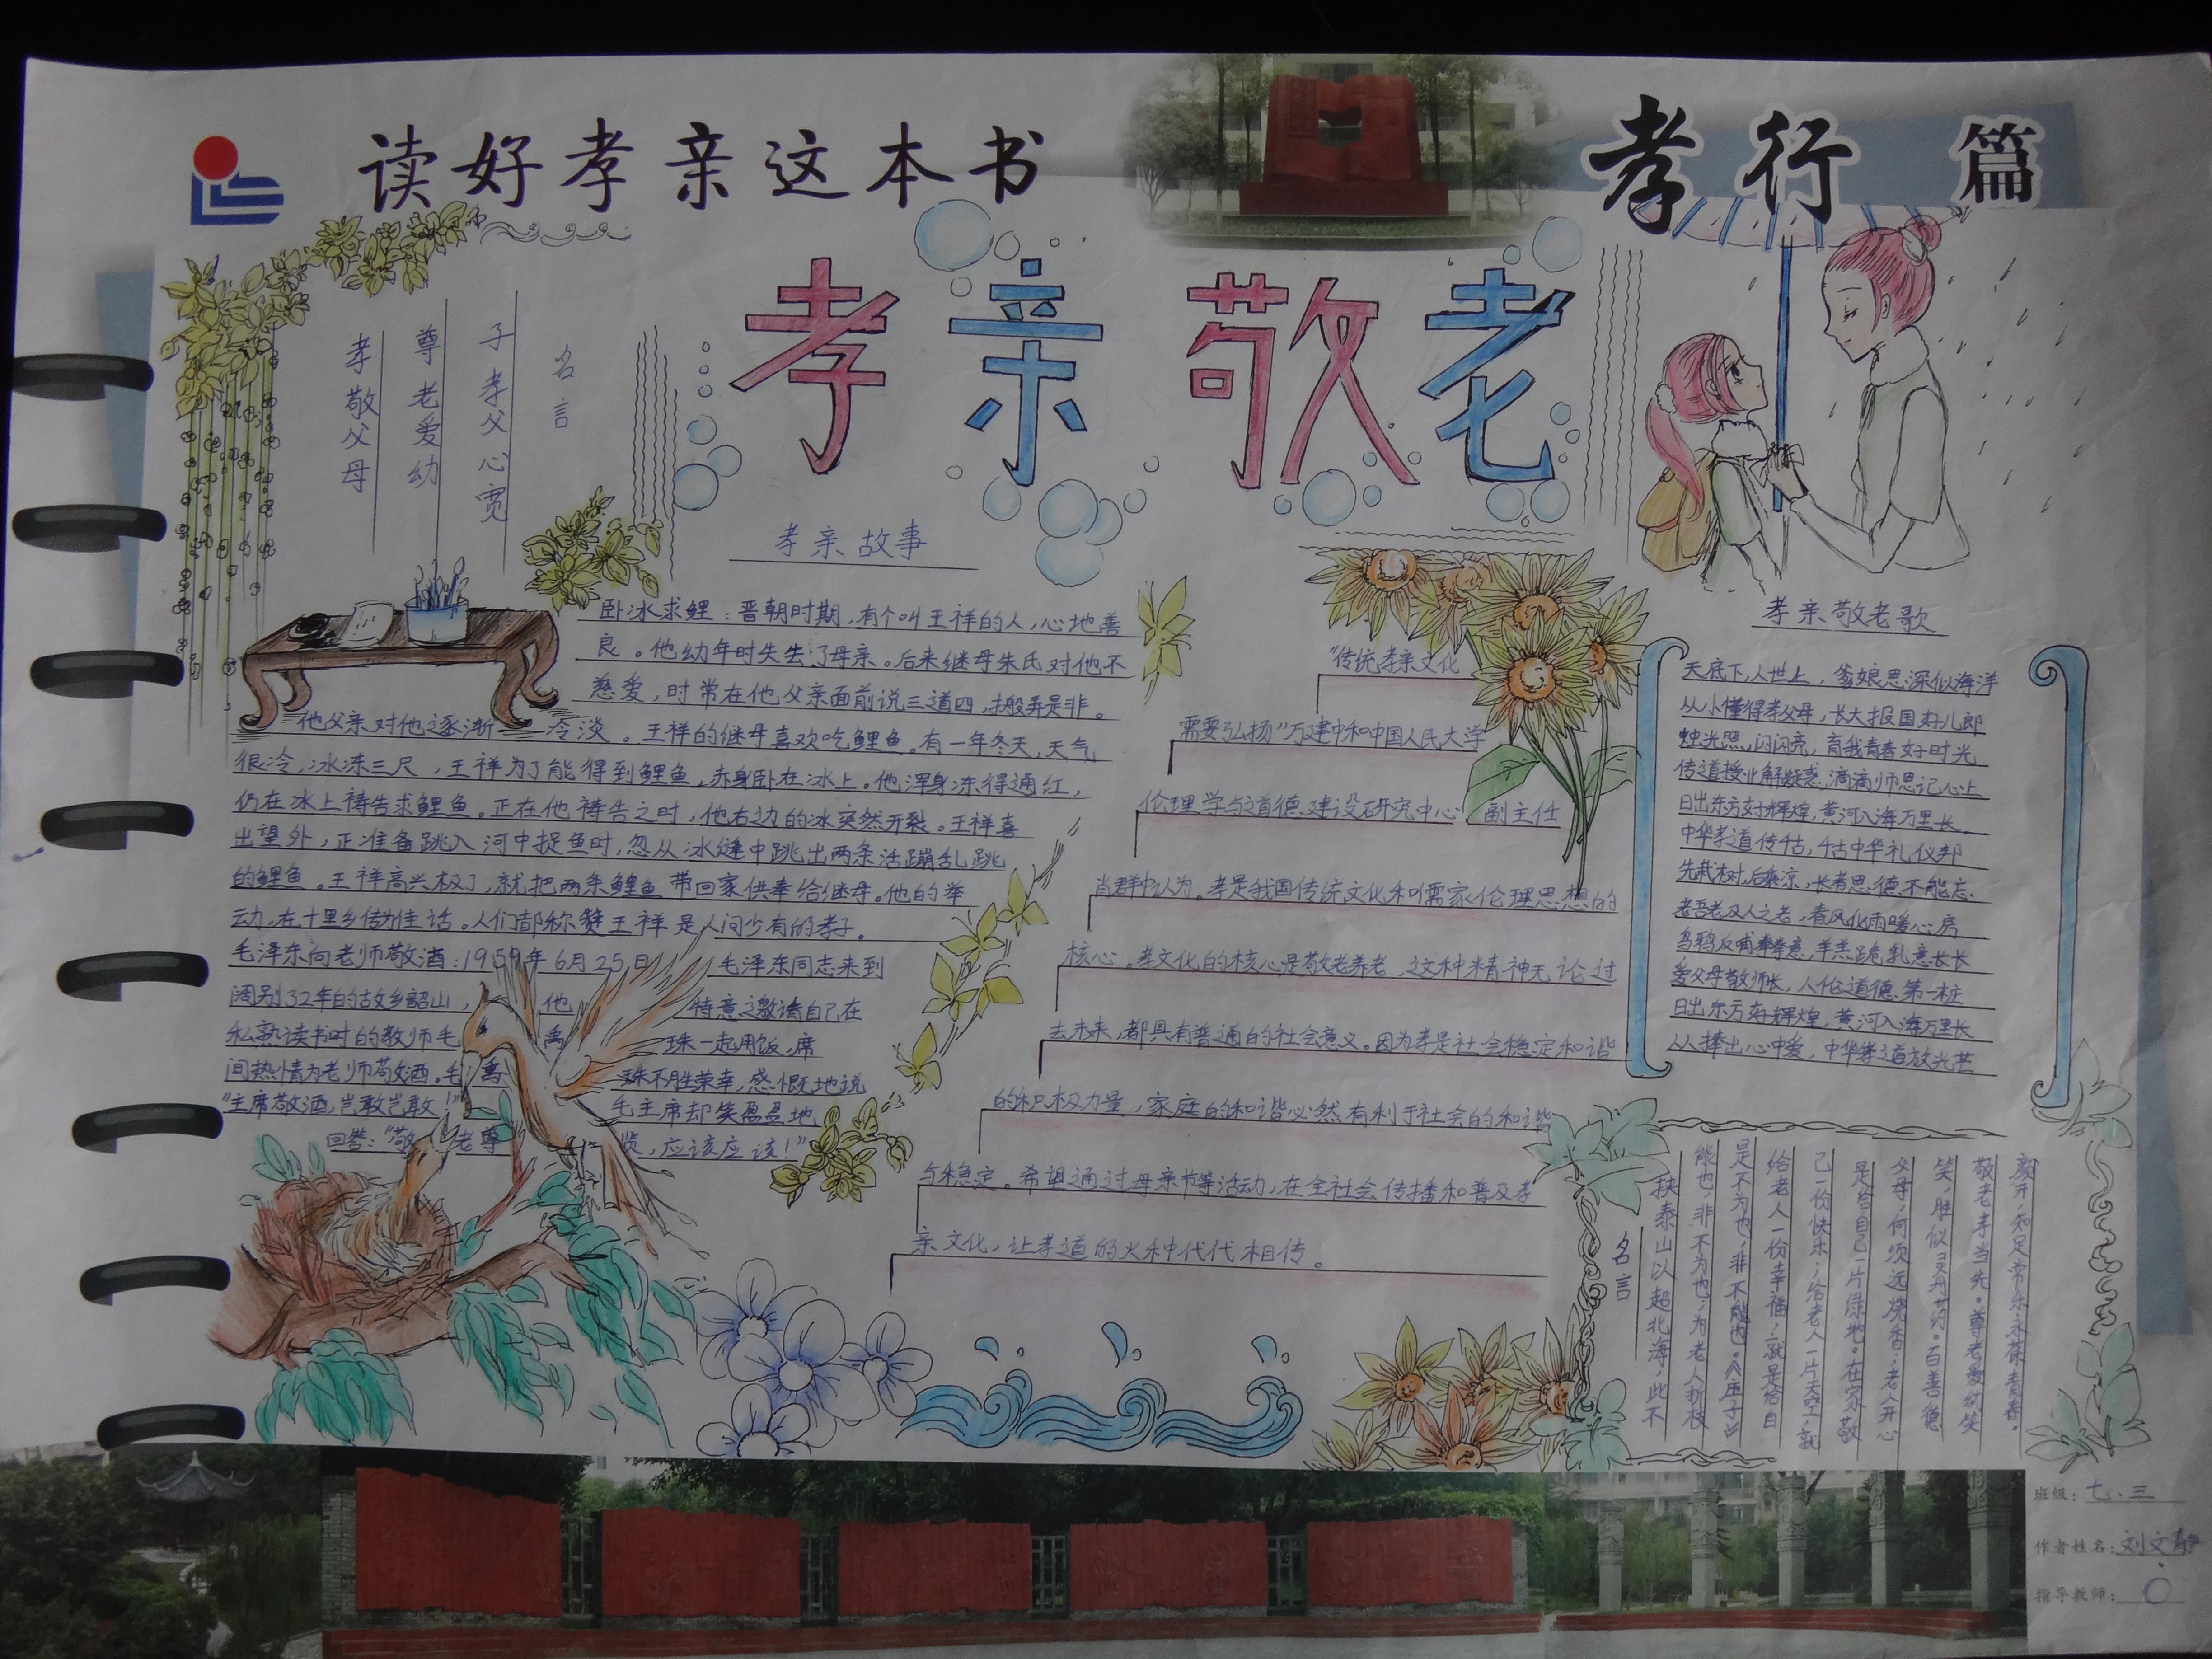 读好孝亲这本书
孝行 篇
孝亲敬老
名言
子孝父心宽
尊老爱幼
孝敬父母
孝亲故事
卧冰求鲤：晋朝时期，有个叫王祥的人，心地善
良。他幼年时失去了母亲。后来继母朱氏对他不
慈爱，时常在他父亲面前说三道四，搬弄是非。
他父亲对他逐渐冷淡。王祥的继母喜欢吃鲤鱼。有一年冬天，天气
很冷，冰冻三尺，王祥为了能得到鲤鱼，赤身卧在冰上。他浑身冻得通红，
仍在冰上祷告求鲤鱼。正在他祷告之时，他右边的冰突然开裂。王祥喜
出望外，正准备跳入河中捉鱼时，忽从冰缝中跳出两条活蹦乱跳
的鲤鱼。王祥高兴极了，就把两条鲤鱼带回家供奉给继母。他的举
动，在十里乡传为佳话。人们都称赞王祥是人间少有的孝子。
毛泽东向老师敬酒：1959年6月25日 毛泽东同志来到
阔别32年的故乡韶山，他 特意邀请自己在
私熟读书时的教师毛禹 珠一起用饭，席
间热情为老师敬酒。毛禹 珠不胜荣幸，感慨地说
“主席敬酒，岂敢岂敢！” 毛主席却笑盈盈地
回答：“敬老尊 贤，应该应该！”
“传统孝亲文化
需要弘扬”万建中和中国人民大学
伦理学与道德建设研究中心 副主任
肖群中认为。孝是我国传统文化和儒家伦理思想的
核心。孝文化的核心是敬老养老，这种精神无论过
去未来，都具有普通的社会意义。因为孝是社会稳定和谐
的积极力量，家庭的和谐必然有利于社会的和谐
与稳定。希望通过母亲节等活动，在全社会传播和普及孝
亲文化，让孝道的火种代代相传。
孝亲敬老歌
天底下，人世上，爹娘恩深似海洋
从小懂得孝父母，长大报国好儿郎
烛光照，闪闪亮，育我青春好时光
传道授业解疑惑，滴滴师恩记心上
日出东方好辉煌，黄河入海万里长
中华孝道传千古，千古中华礼仪邦
先栽树，后乘凉，长者恩德不能忘
老吾老及人之老，春风化雨暖心房
乌鸦反哺孝孝意，羊羔跪乳意长长
爱父母敬师长，人伦道德第一桩
日出东方好辉煌，黄河入海万里长
人人捧出心中爱，中华孝道放光芒
名言
挟泰山以超北海，此不
能也，非不为也；为老人折枝
是不为也，非不能也。《孟子》
给老人一份幸福，就是给自
己一份快乐；给老人一片天空，就
是给自己一片绿地。在家敬
父母，何须远烧香；老人开心
笑，胜似灵丹药。百善德
敬老丰当先。尊老爱幼笑
颜开，知足常乐永葆青春。
班级：七.三
作者姓名：刘文静
指导教师：